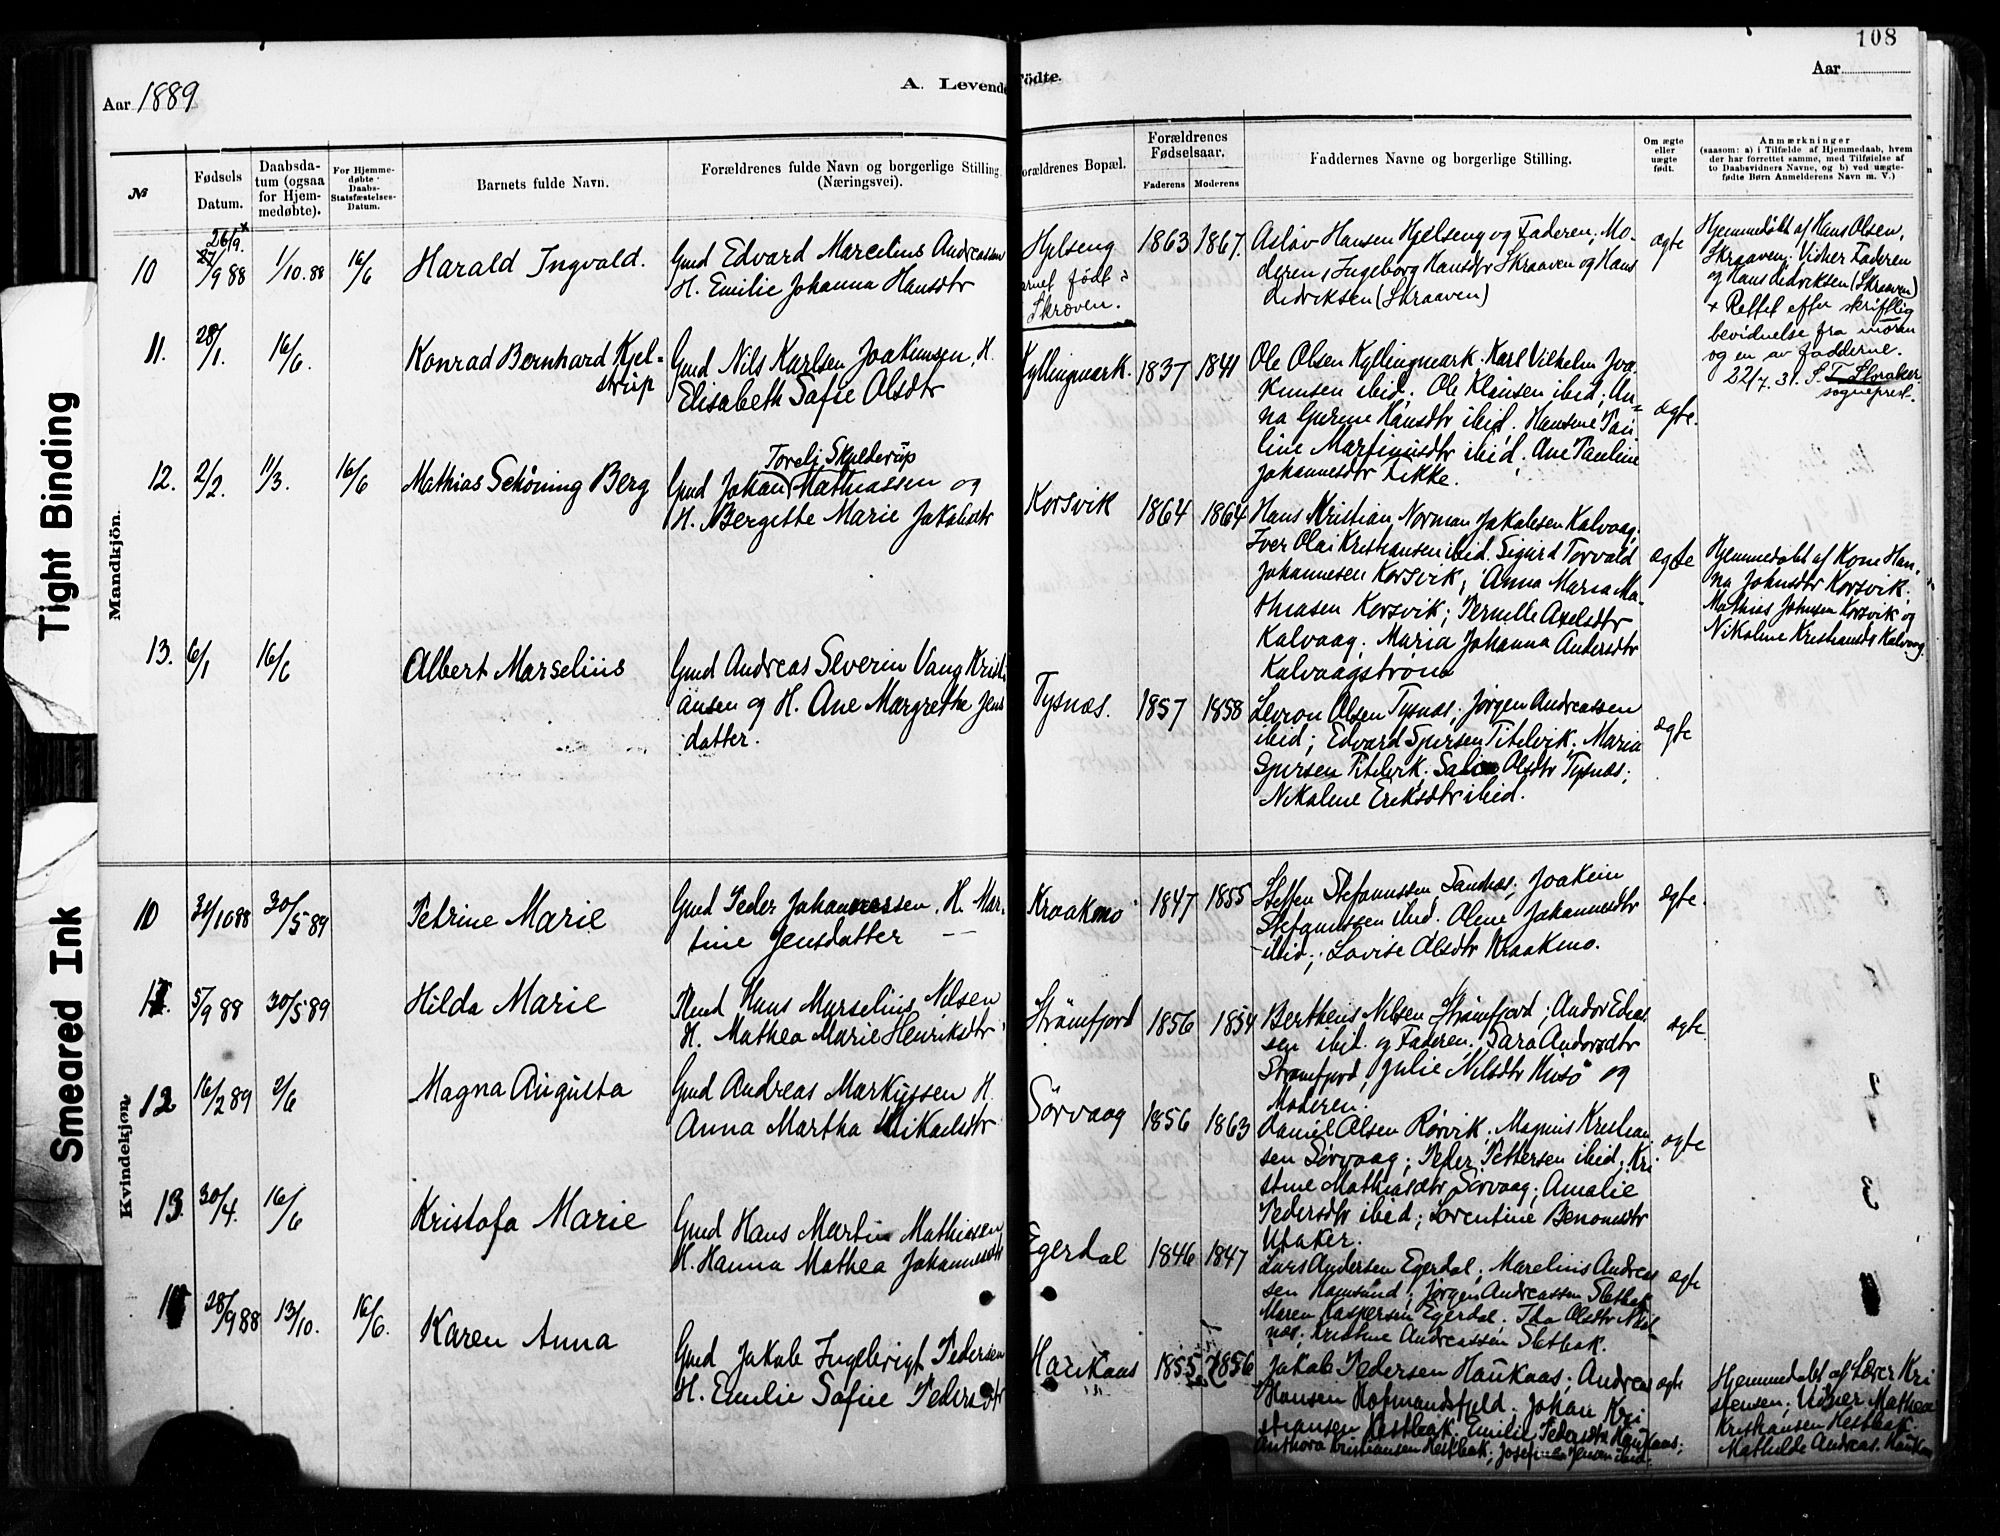 108
Aar 1889
A. Levende
Födte.
Aar
№
Fødsels
Datum.
Daabsda-
tum (ogsaa
for Hjem-
medøbte).
For Hjemme-
døbte
Daabs-
Statsfæstelses-
Datum.
Barnets fulde Navn.
Forældrenes fulde Navn og borgerlige Stilling.
(Næringsvei).
Forældrenes Bopæl.
Forældrenes
Fødselsaar.
Faderens
Moderens
Faddernes Navne og borgerlige Stilling.
Om ægte
eller
uægte
født.
Anmærkninger
(saasom: a) i Tilfælde af Hjemmedaab, hvem
der har forrettet samme, med Tilføielse af
to Daabsvidners Navne, og b) ved uægte-
fødte Børn Anmelderens Navn m. V.)
Tight Binding
Smeared Ink
Mandkjön.
10
26/9. x
27/9 88
1/10. 88
16/6
Harald Ingvald.
Gmd Edvard Marcelius Andreassen
H. Emilie Johanna Hansdtr
Hjelseng
født
Skroven.
1863
1867.
Asløv Hansen Hjelseng og Faderen, Mo-
deren, Ingeborg Hansdtr Skraaven og Hans
Didriksen (Skraaven)
ægte
Hjemmedøbt af Hans Olsen,
Skraaven; Vidner Faderen
og Hans Didriksen (Skraaven)
+ Rettet efter skriftlig
bevidnelse fra moren
og en av fadderne.
22/7. 31. S.
sogneprest.
11.
28/1.
16/6.
Konrad Bernhard Kjel-
strup
Gmd Nils Karlsen Joakimsen, H.
Elisabeth Safie Olsdtr
Kyllingmark.
1837
1841
Ole Olsen Kyllingmark, Karl Vilhelm Joa-
kimsen ibid; Ole Klausen ibid; An-
na Hansdtr ibid. Hansine Pau-
line Martinusdtr ibid, Ane Pauline
Johannesdtr
ægte.
12.
2/2.
11/3.
16/6
Mathias Schöning Berg
Torelj Skjelderup
Gmd Johan Mathiassen og
H. Bergitte Marie Jakobsdtr
Korsvik
1864
1864
Hans Kristian Norman Jakobsen Kalvaag,
Iver Olai Kristiansen ibid. Sigurd Torvald
Johannesen Korsvik; Anna Maria Ma-
thiasen Korsvik; Pernille Axelsdtr
Kalvaag; Maria Johanna Andersdtr
Kalvaagstrøm
ægte
Hjemmedøbt af Kone Han-
na Johnsdtr Korsvik.
Mathias Johnsen Korsvik og
Nikoline Kristiansdtr Kalvaag.
13.
6/1
16/6
Albert Marselius
Gmd Andreas Severin Vang Kristi
ansen og H. Ane Margrethe Jens
datter.
Tysnæs.
1857
1858
Olsen Tysnæs, Jørgen Andreassen
ibid; Edvard Titelvik, Maria
Olsdtr Tysnæs;
Nikoline Eriksdtr ibid.
ægte
Kvindekjøn.
10
30/5 89
Petrine Marie
Gmd Peder Johannessen. H. Mar-
tine Jensdatter
Kraakmo
1847
1855
Steffen Stefanussen Sandnæs; Joakim
Stefanussen ibid. Oline Johannesdtr
ibid; Lovise Olsdtr Kraakmo.
ægte.
11.
5/9 88
30/5 89
Hilda Marie
Hans Marselius Nilsen
H. Mathea Marie Henriksdtr
Strømfjord
1856
1854
Bertheus Nilsen Strømfjord; Andor
sen ibid. og Faderen. Sara Andorsdtr
Strømfjord, Julie Nilsdtr Husö og
Moderen.
ægte
12
16/2 89
2/6
Magna Augusta
Gmd Andreas Markussen H.
Anna Martha Mikaelsdtr
Sørvaag
1856
1863
Daniel Olsen Rørvik, Magnus Kristian-
sen Sørvaag; Peder Pettersen ibid; Kri-
stine Mathiasdtr Sørvaag; Amalie
Pedersdtr ibid; Lorentine Benonisdtr
Utaker.
ægte
13.
30/4.
16/6
Kristofa Marie
Gmd Hans Martin Mathiasen
H. Hanna Mathea Johannesdtr
Egerdal
1846
1847
Lars Andersen Egerdal; Marelius Andreas
sen Hamsund; Jørgen Andreassen Sletbak
Maren Kaspersen Egerdal, Ida Olsdtr
næs. Kristine Andreassen Sletbak.
ægte
28/9 88
13/10.
16/6.
Karen Anna
Gmd Jakob Ingebrigt Pedersen
H. Emilie Sofie Pedersdtr
Haukaas
1855
1856
Jakob Pedersen Haukaas; Andreas
Hansen Hofmandsfjeld. Johan Kri
stiansen Hestbak, Emilie Pedersdtr Haukaas;
Anthora Kristiansen Hestbak; ibid.
ægte
Hjemmedøbt af Lærer Kri
stensen; Vidner Mathea
Kristiansen Hestbak.
Mathilde Andreas. Haukaas